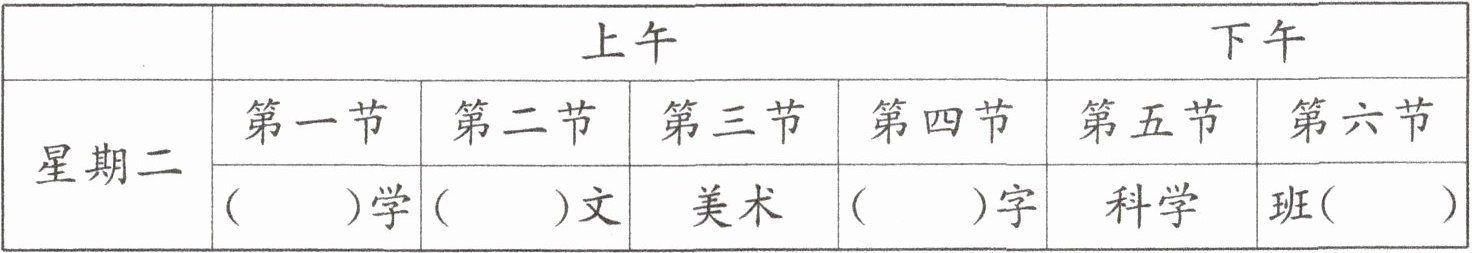 上午 下午
星期二
第一节 第二节 第三节 第四节 第五节 第六节
( )学 ( )文 美术 ( )字 科学 班( )